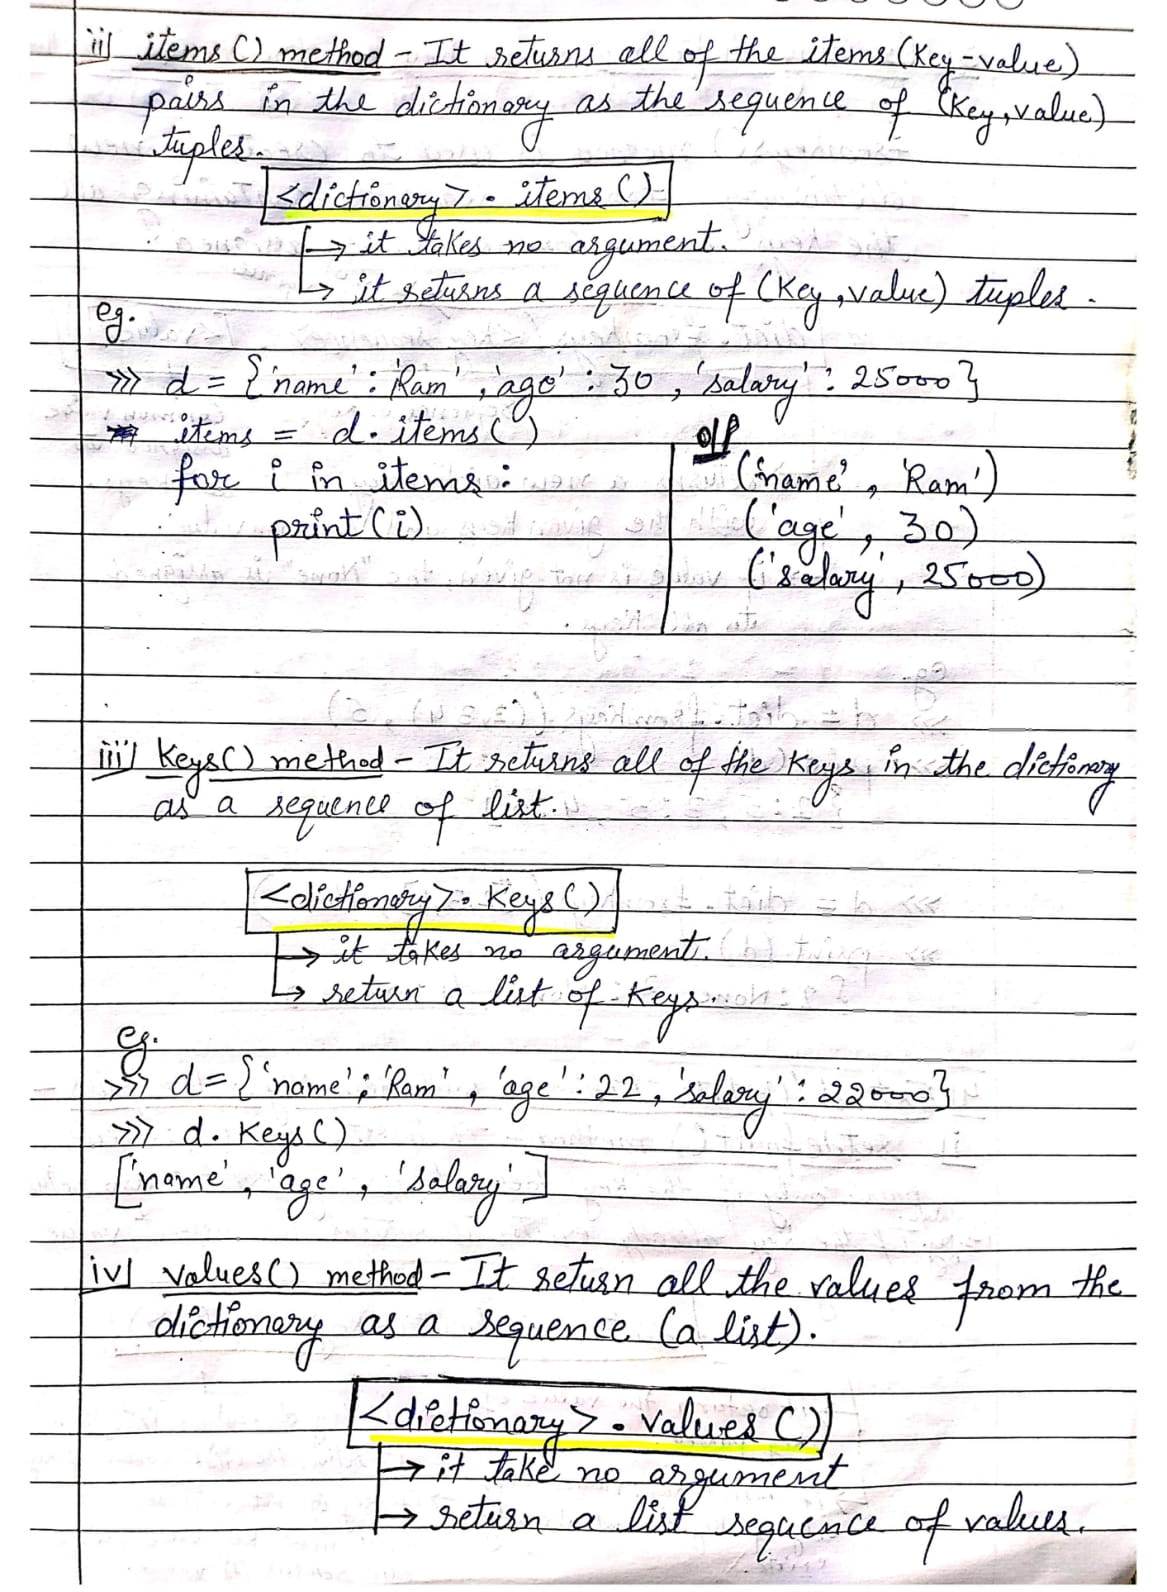 ii) items () method - It returns all of the items (Key-value)
pairs in the dictionary as the sequence of (Key, value)
tuples.
<dictionary>. items ()
→ it takes no argument.
→ it returns a sequence of (Key, value) tuples.
eg.
>>> d = {'name' : 'Ram', 'age' : 30, 'salary' : 25000}
items = d. items ()
for i in items :
print (i)
o/p
('name', 'Ram')
('age', 30)
('salary', 25000)
iii) Keys() method - It returns all of the Keys in the dictionary
as a sequence of list.
<dictionary>. Keys ()
→ it takes no argument.
→ return a list of Keys.
eg.
>>> d = {'name' : 'Ram', 'age' : 22, 'salary' : 22000}
>>> d. Keys ()
['name', 'age', 'salary']
iv) values() method - It return all the values from the
dictionary as a sequence (a list).
<dictionary>. values ()
→ it take no argument
→ return a list sequence of values.